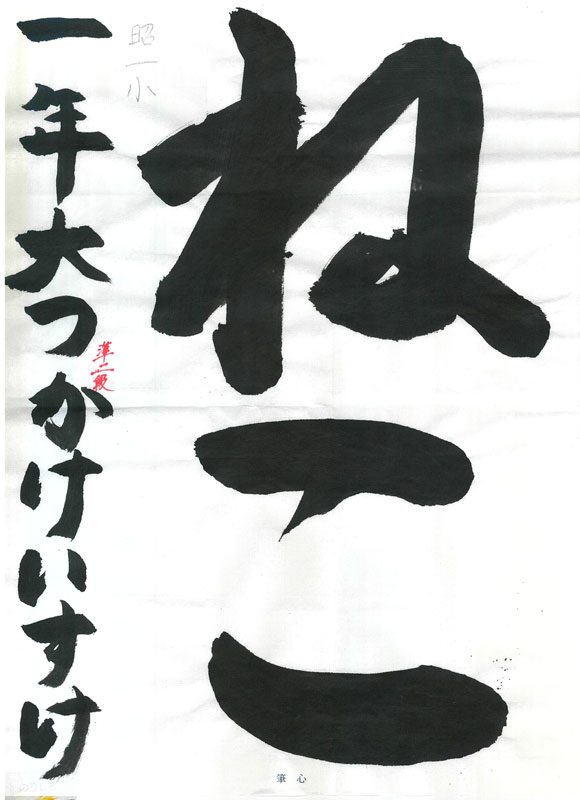 ねこ
昭一小
一年大つかけいすけ
準二段
筆心